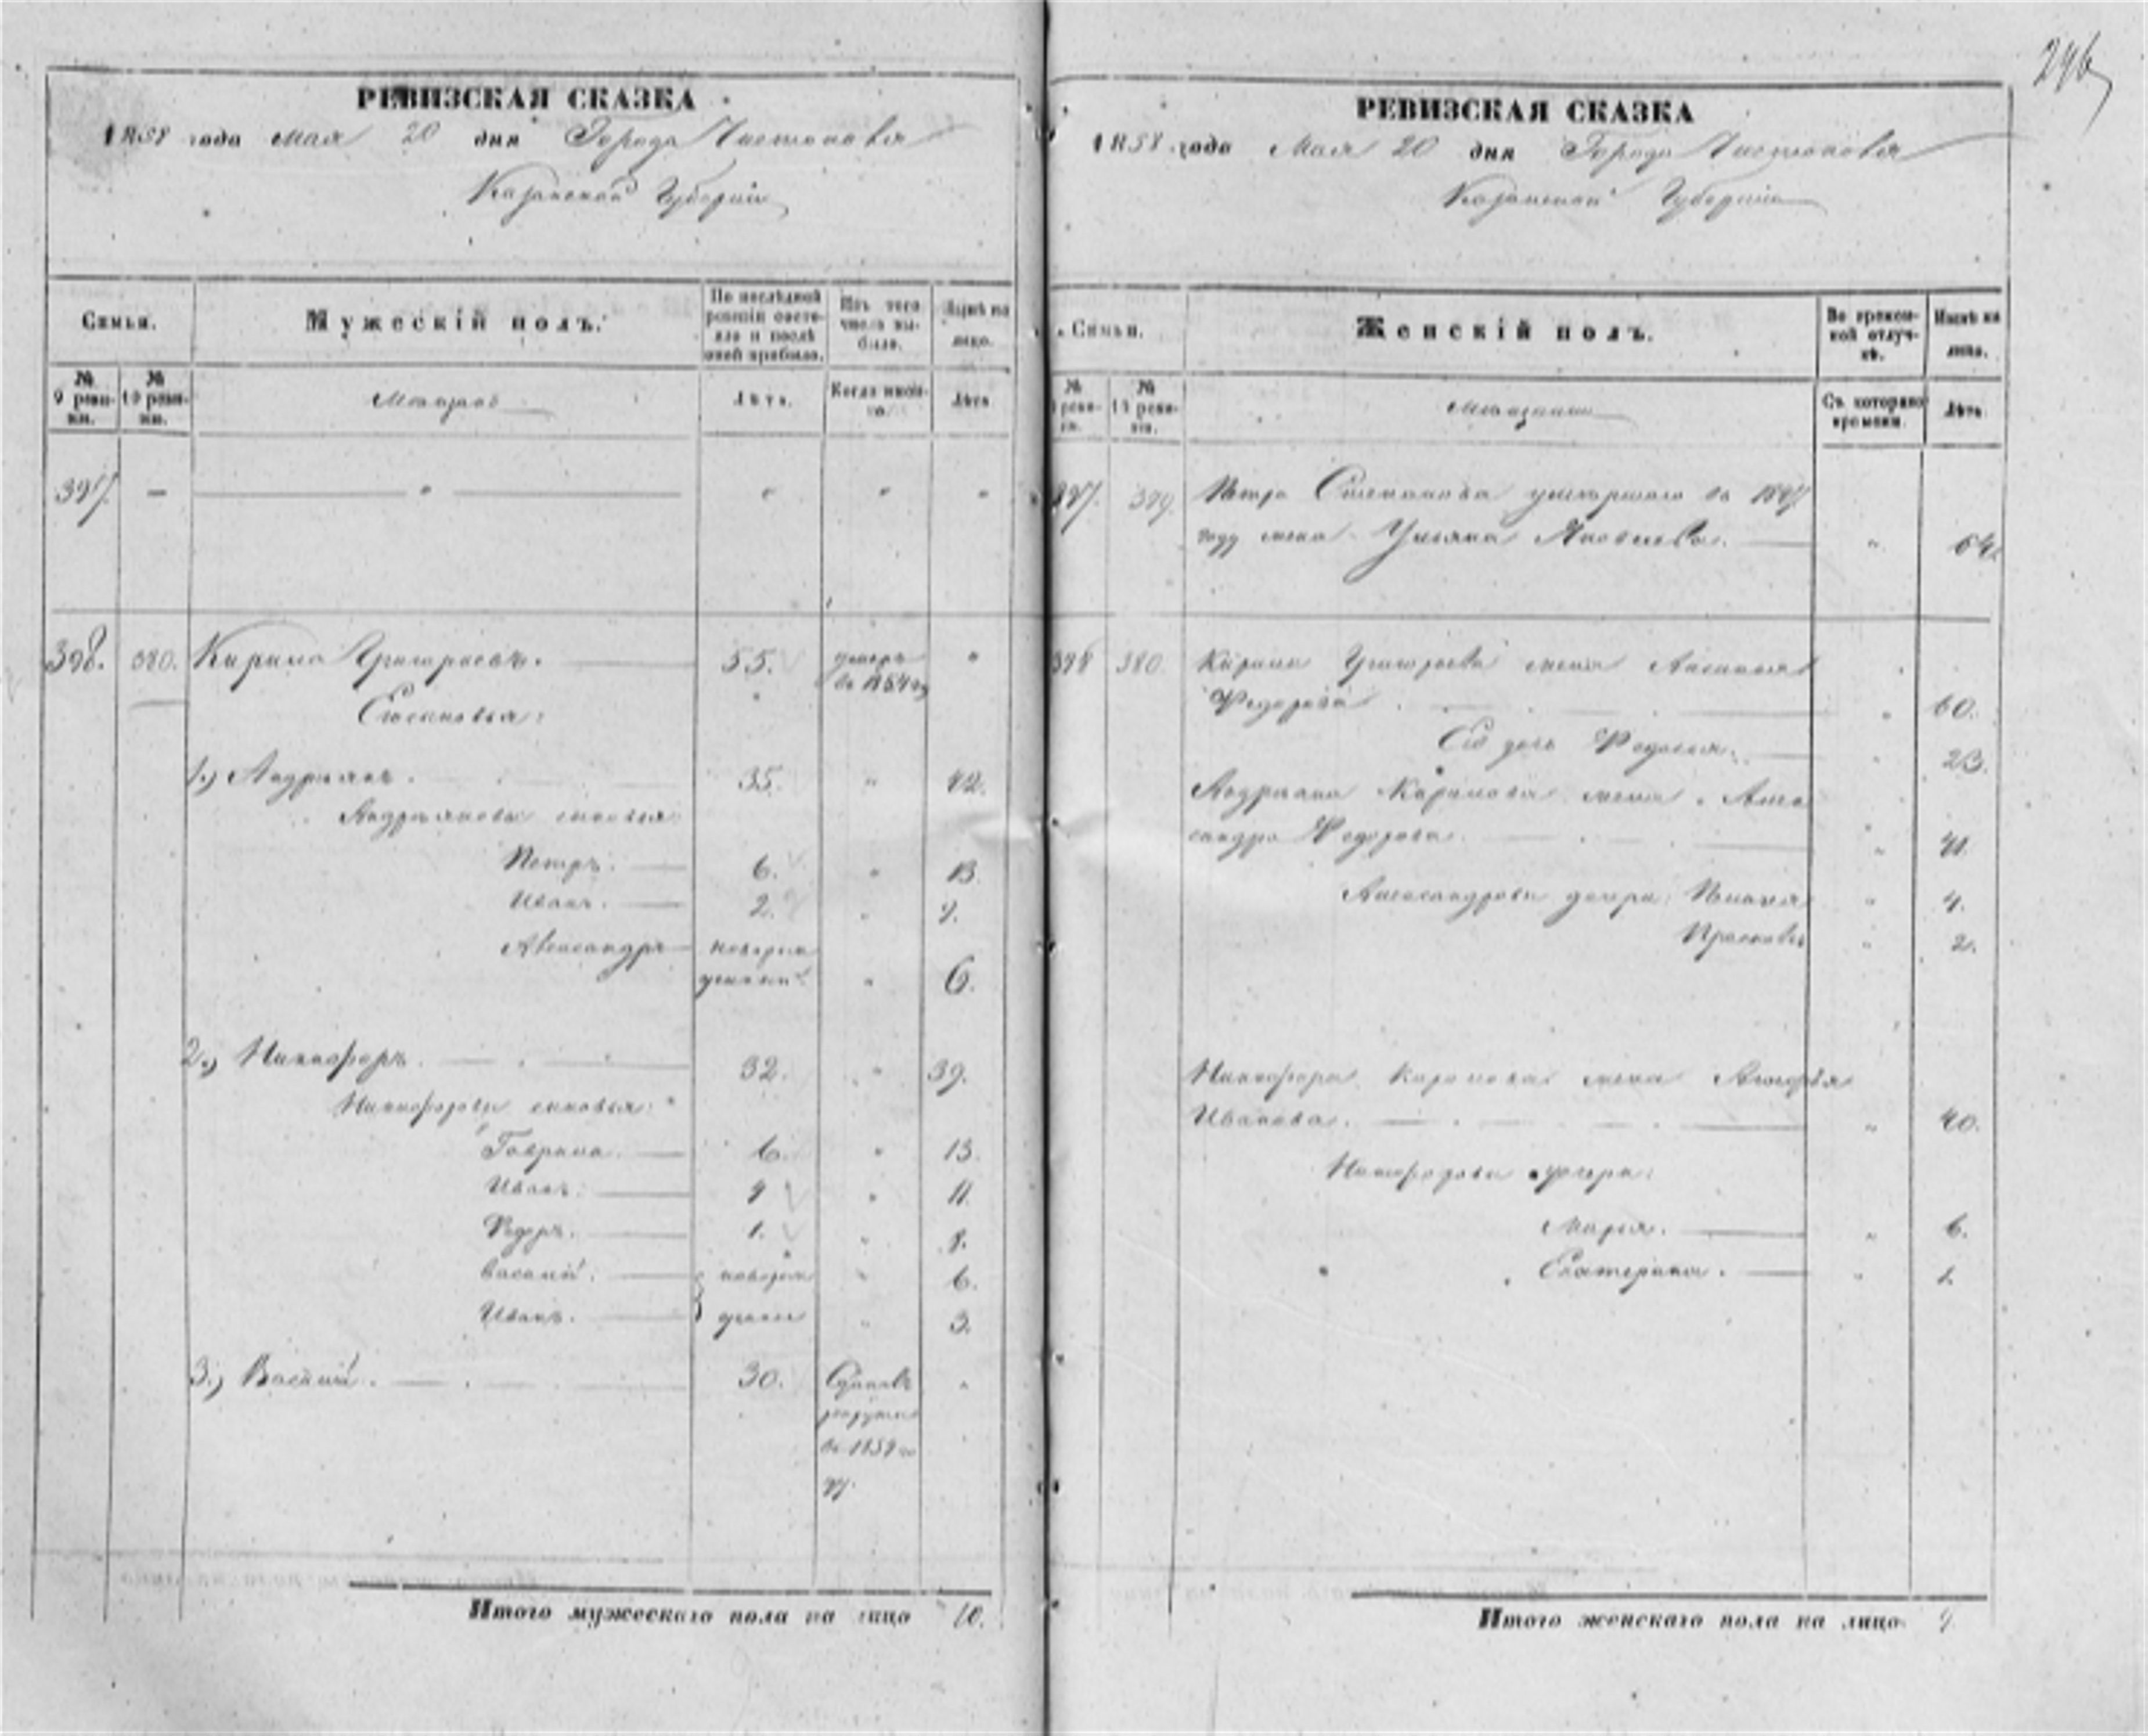 296
РЕВИЗСКАЯ СКАЗКА
1858 года мая 20 дня Города Чистополя
Казанской Губернии
Семьи.
Мужескій полъ.
По послѣдней ревизіи состояло и послѣ оной прибыло.
Изъ того числа выбыло.
Нынѣ на лицо.
№ 9 ревизіи.
№ 10 ревизіи.
Мѣщанъ
Лѣта.
Когда именно.
Лѣта
397. — " " " "
398. 380. Кирило Григорьевъ. 55. умеръ в 1854 "
Сыновья:
1.) Андрьянъ. 35. " 42.
Андрьяновы сыновья
Петръ. 6. " 13.
Иванъ. 2. " 9.
Александръ новорож
денный " 6.
2.) Никифоръ. 32. " 39.
Никифоровы сыновья:
Гаврила. 6. " 13.
Иванъ. 4 " 11.
Федоръ. 1. " 8.
Василий. новорож " 6.
Иванъ. " 3.
3.) Василий. 30. "
рекруты
в 185
Итого мужескаго пола на лицо 10.
РЕВИЗСКАЯ СКАЗКА
1858 года Мая 20 дня Города Чистополя
Казанской Губернии
Семьи.
Женскій полъ.
Во временной отлучкѣ.
Нынѣ на лицо.
№ 9 ревизіи.
№ 10 ревизіи.
Съ котораго времени.
Лѣта
397. 379. Петра Степанова умершаго в 1847
году жена Ульяна Яковлева. " 64.
398 380. Кирила Григорьева жена
Федорова " 60.
Его дочь Федосья. " 23.
Андрьяна Кирилова жена Алек
сандра Федорова. " 41.
дочери: " 4.
Прасковья " 2.
Никифора Кирилова жена
Иванова. " 40.
Никифоровы дочери:
Марья. " 6.
Екатерина. " 1.
Итого женскаго пола на лицо 9.